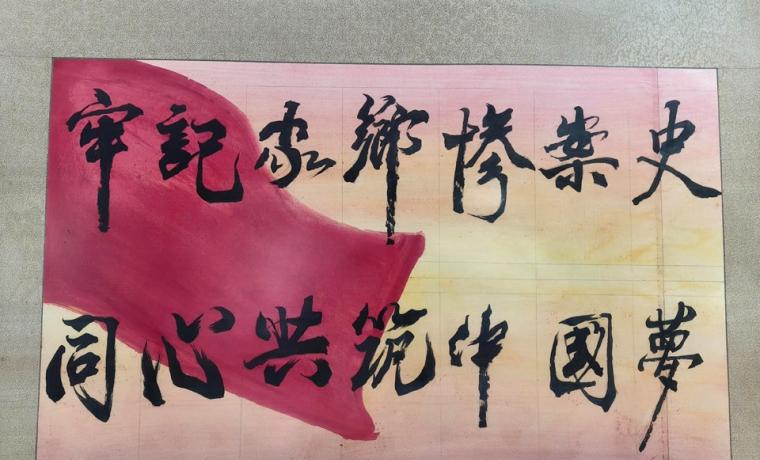 牢記家鄉惨案史
同心共筑中國夢